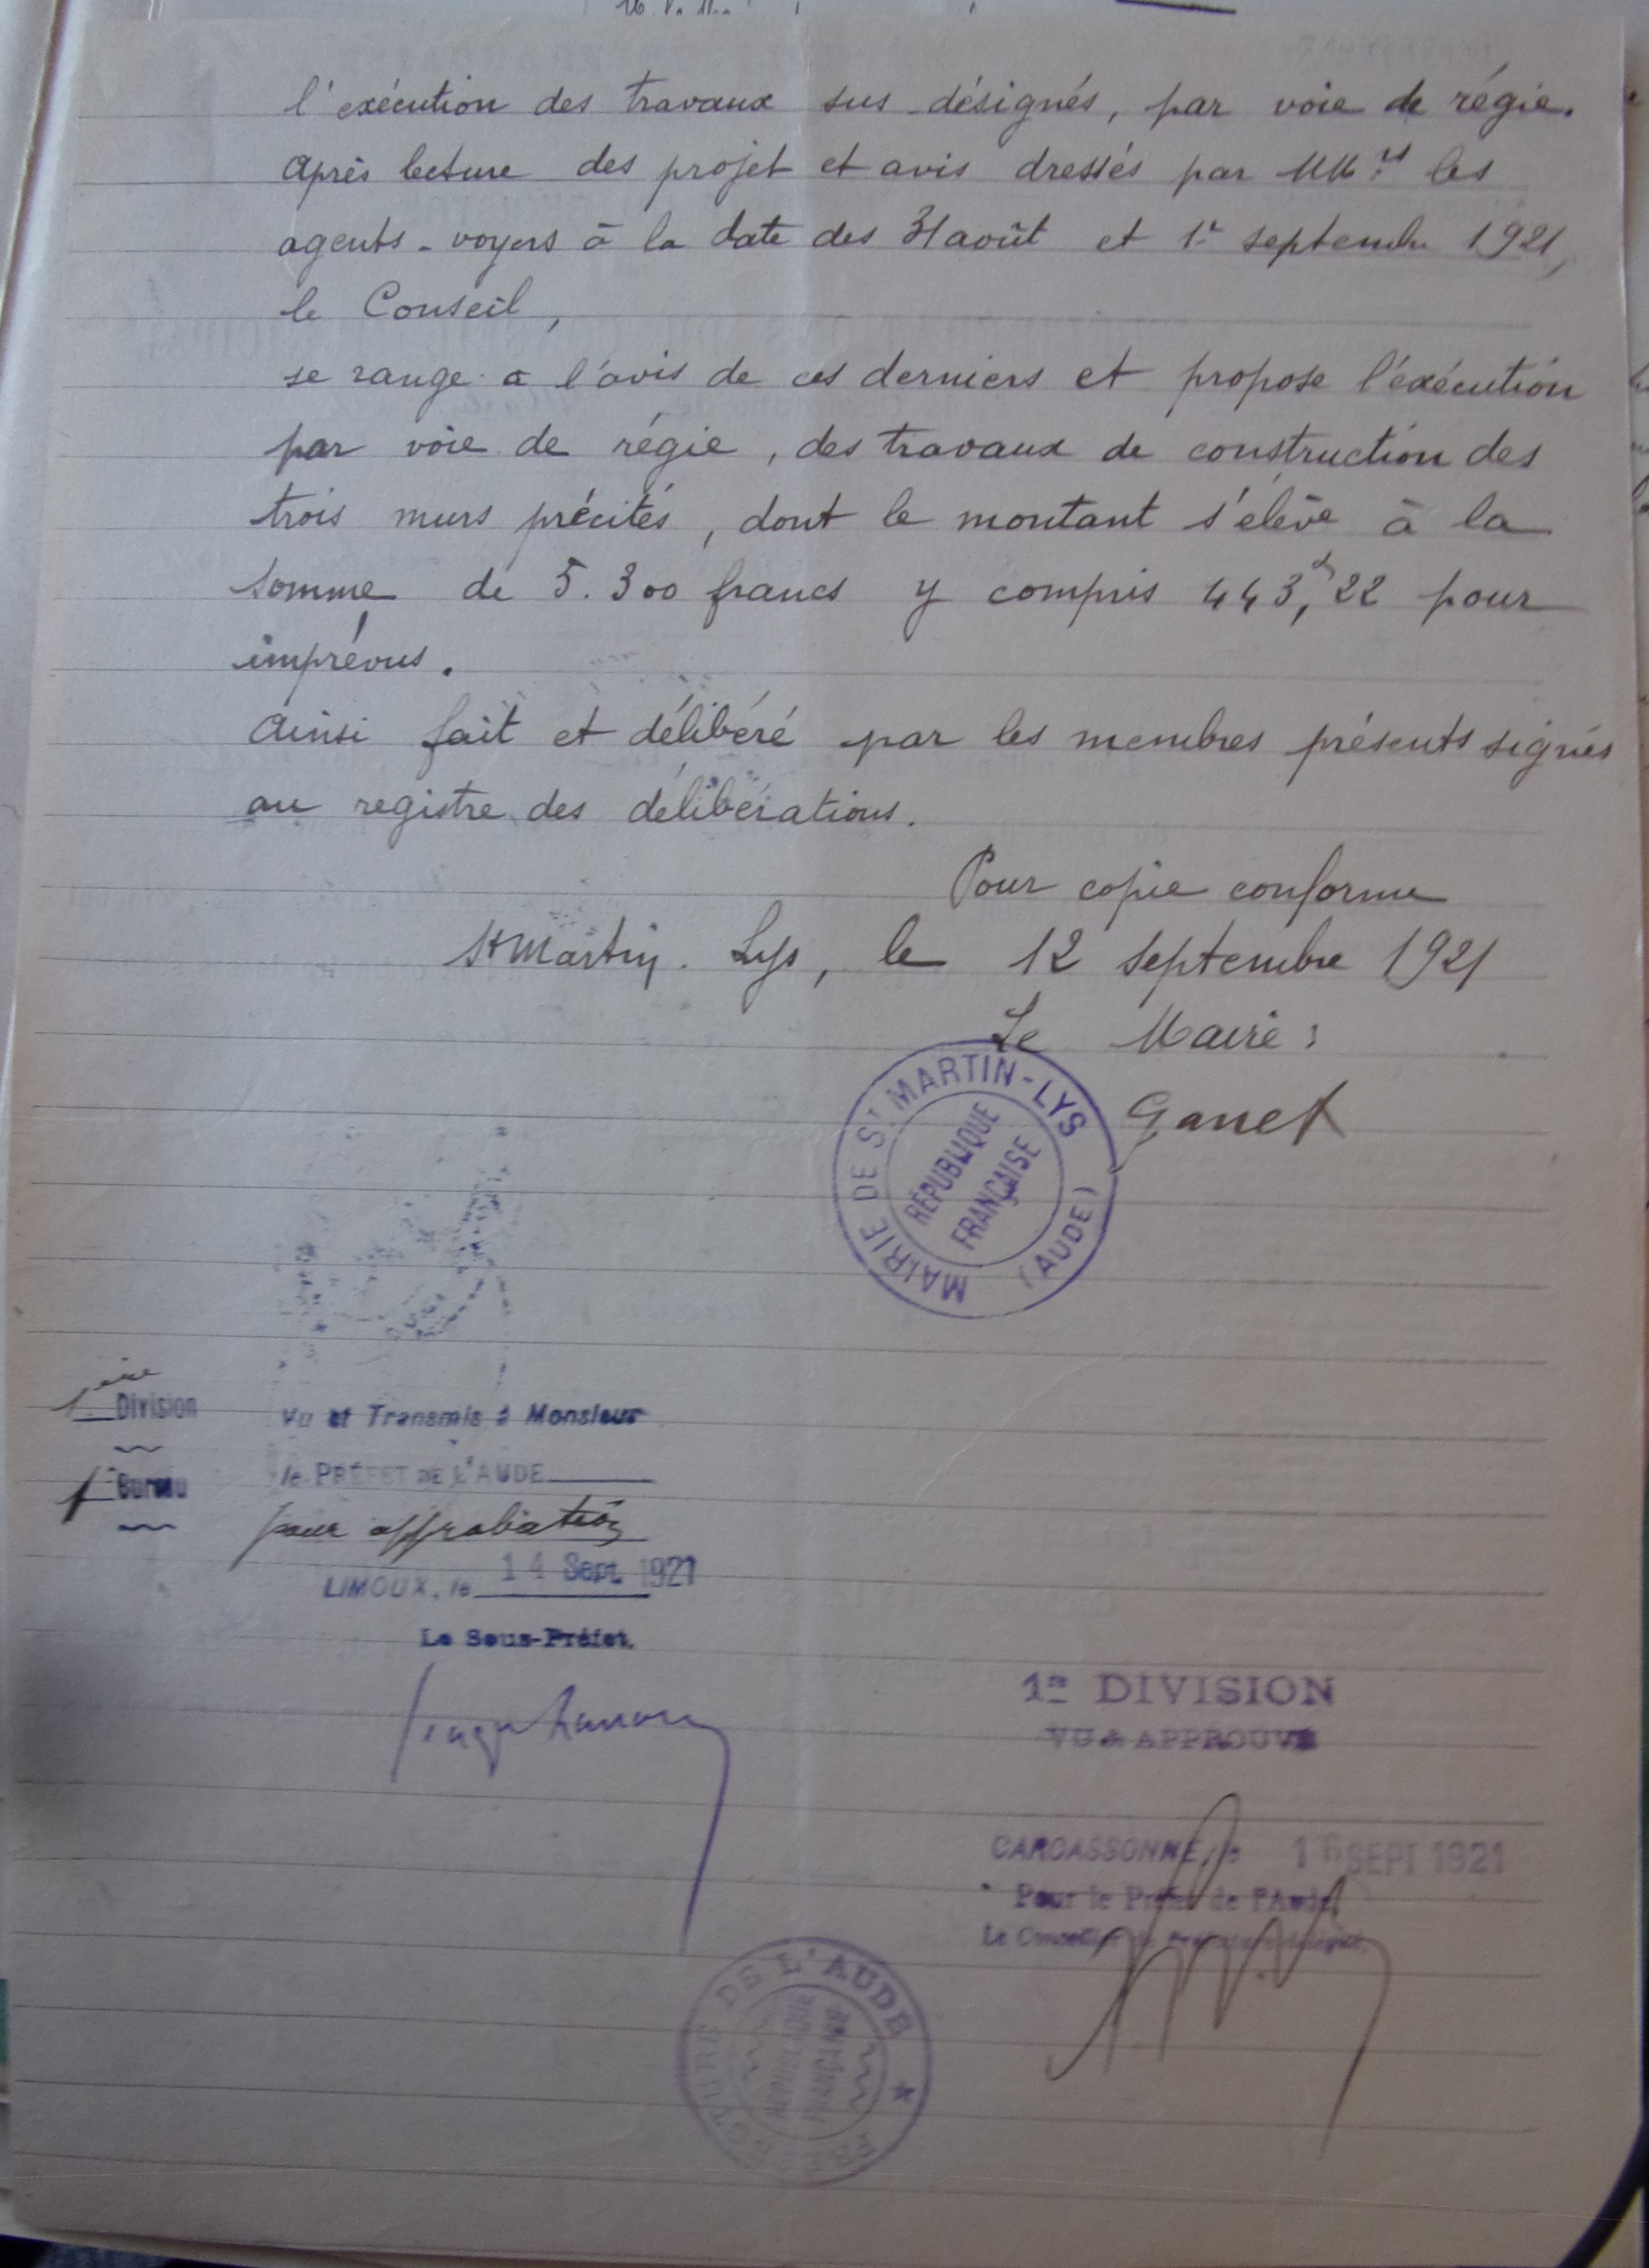 l'exécution des travaux sus-désignés, par voie de régie.
Après lecture des projet et avis dressés par MM.rs les
agents-voyers à la date des 31 août et 1er septembre 1921,
le Conseil,
se range à l'avis de ces derniers et propose l'éxécution
par voie de régie, des travaux de construction des
trois murs précités, dont le montant s'élève à la
somme de 5.300 francs y compris 443,f22 pour
imprévus.
Ainsi fait et délibéré par les membres présents signés
au registre des délibérations.
Pour copie conforme
St Martin-Lys, le 12 septembre 1921
Le Maire :
MAIRIE DE ST MARTIN-LYS
(AUDE)
RÉPUBLIQUE
FRANÇAISE
1ère Division
Vu et Transmis à Monsieur
le PRÉFET DE L'AUDE
1er Bureau
pour approbation
LIMOUX, le 14 Sept. 1921
Le Sous-Préfet.
1re DIVISION
VU & APPROUVÉ
CARCASSONNE, le 16 SEPT 1921
Pour le Préfet de l'Aude,
Le Conseiller de Préfecture délégué,
PRÉFECTURE DE L'AUDE
RÉPUBLIQUE
FRANÇAISE